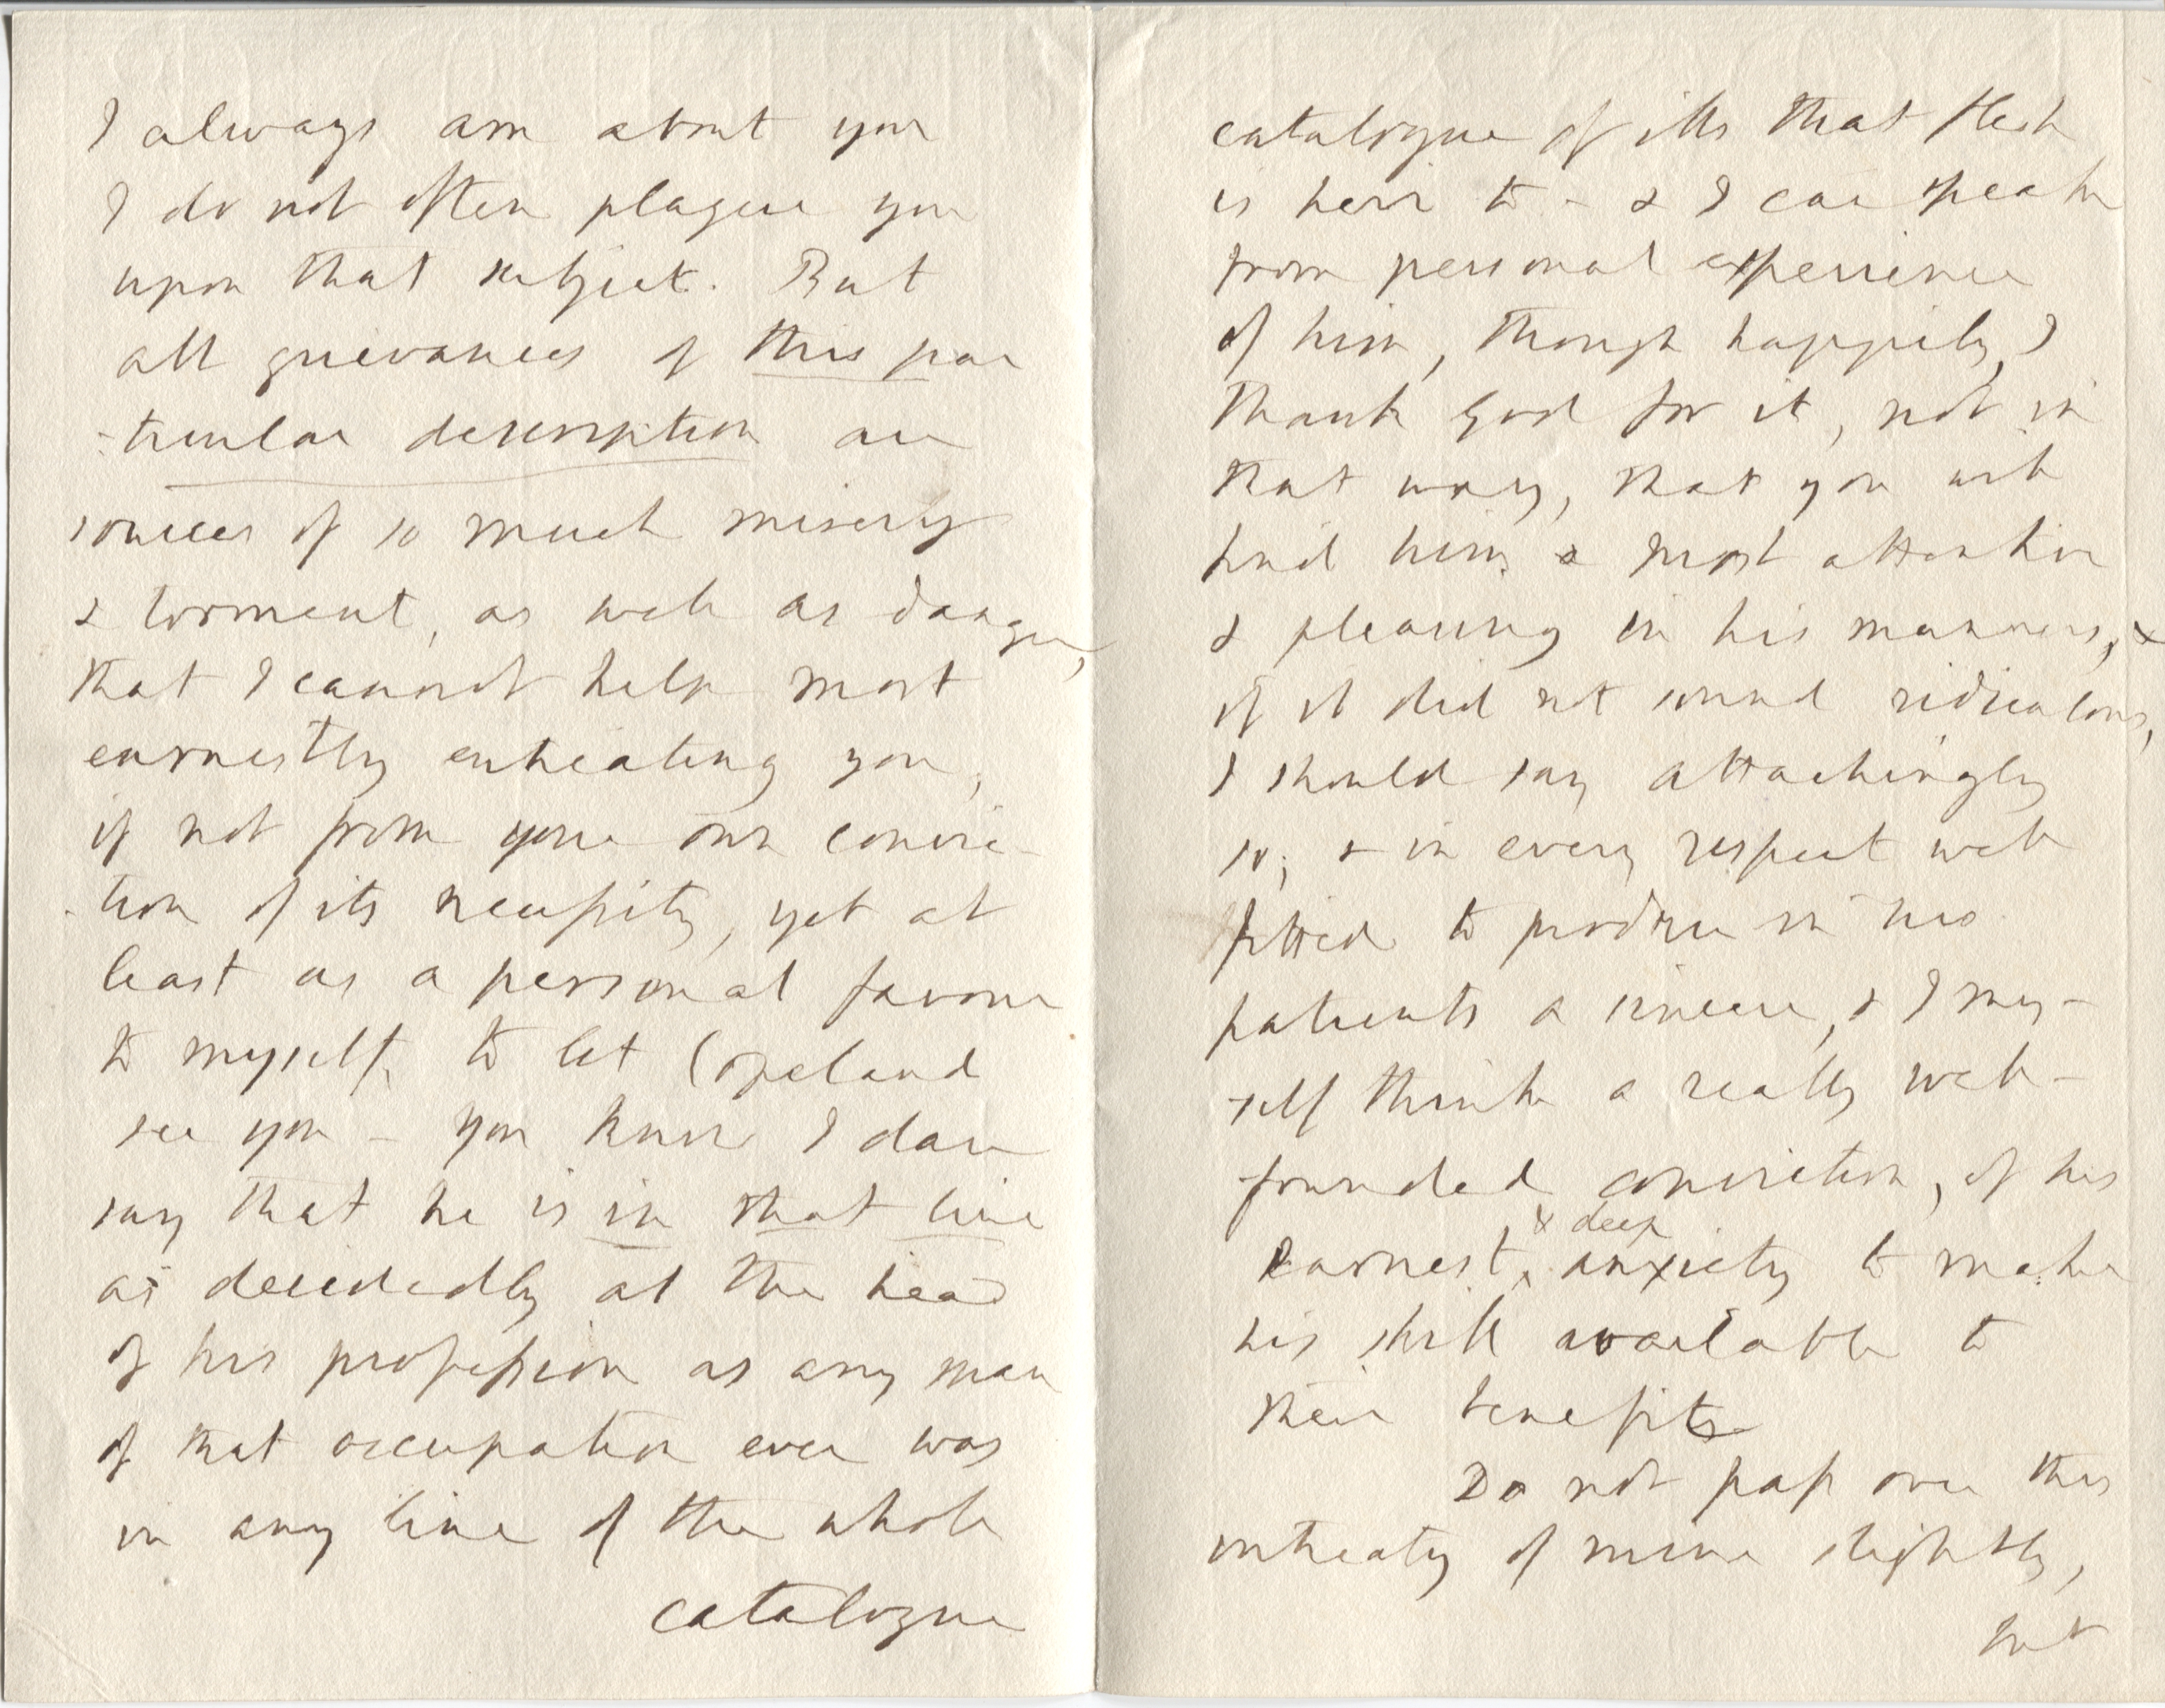 I always am about you
I do not often plague you
upon that subject. But
all grievances of this par
-ticular description are
sources of so much misery
& torment, as well as danger,
that I cannot help most
earnestly entreating you,
if not from your own convic-
-tion of its necessity, yet at
least as a personal favour
to myself, to let Copeland
see you - you know I dare
say that he is in that line
as decidedly at the head
of his profession as any man
of that occupation ever was
in any line of the whole
catalogue
catalogue of ills that flesh
is heir to - & I can speak
from personal experience
of him, though happily, I
thank God for it, not in
that way, that you will
find him a most attentive
& pleasing in his manners, &
if it did not sound ridiculous,
I should say attachingly
so; & in every respect well
fitted to produce in his
patients a sincere, & I my-
-self think a really well-
-founded conviction, of his
earnest, & deep anxiety to make
his skill available to
their benefit
Do not pass over this
intreaty of mine slightly,
but